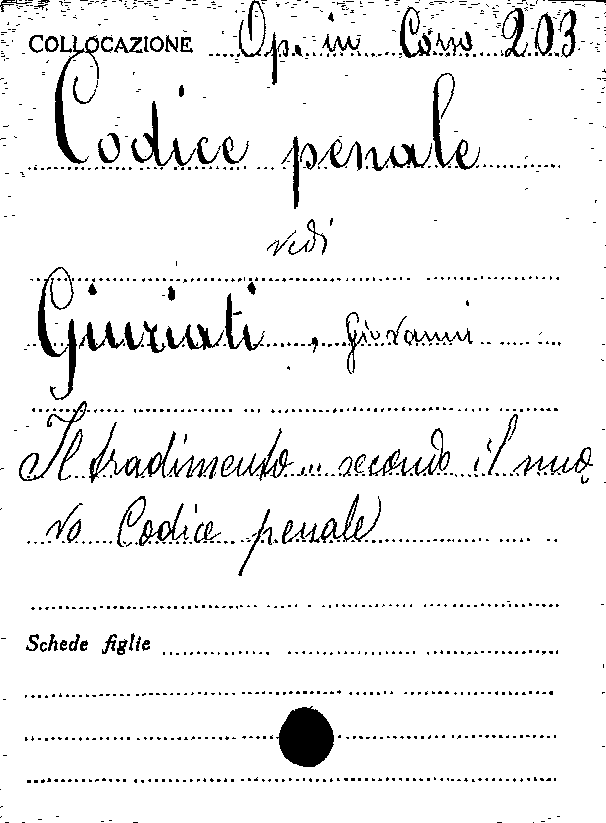 COLLOCAZIONE Op. in Corso 203
Codice penale
vedi
Giuriati, Giovanni
Il tradimento... secondo il nuo
vo Codice penale
Schede figlie